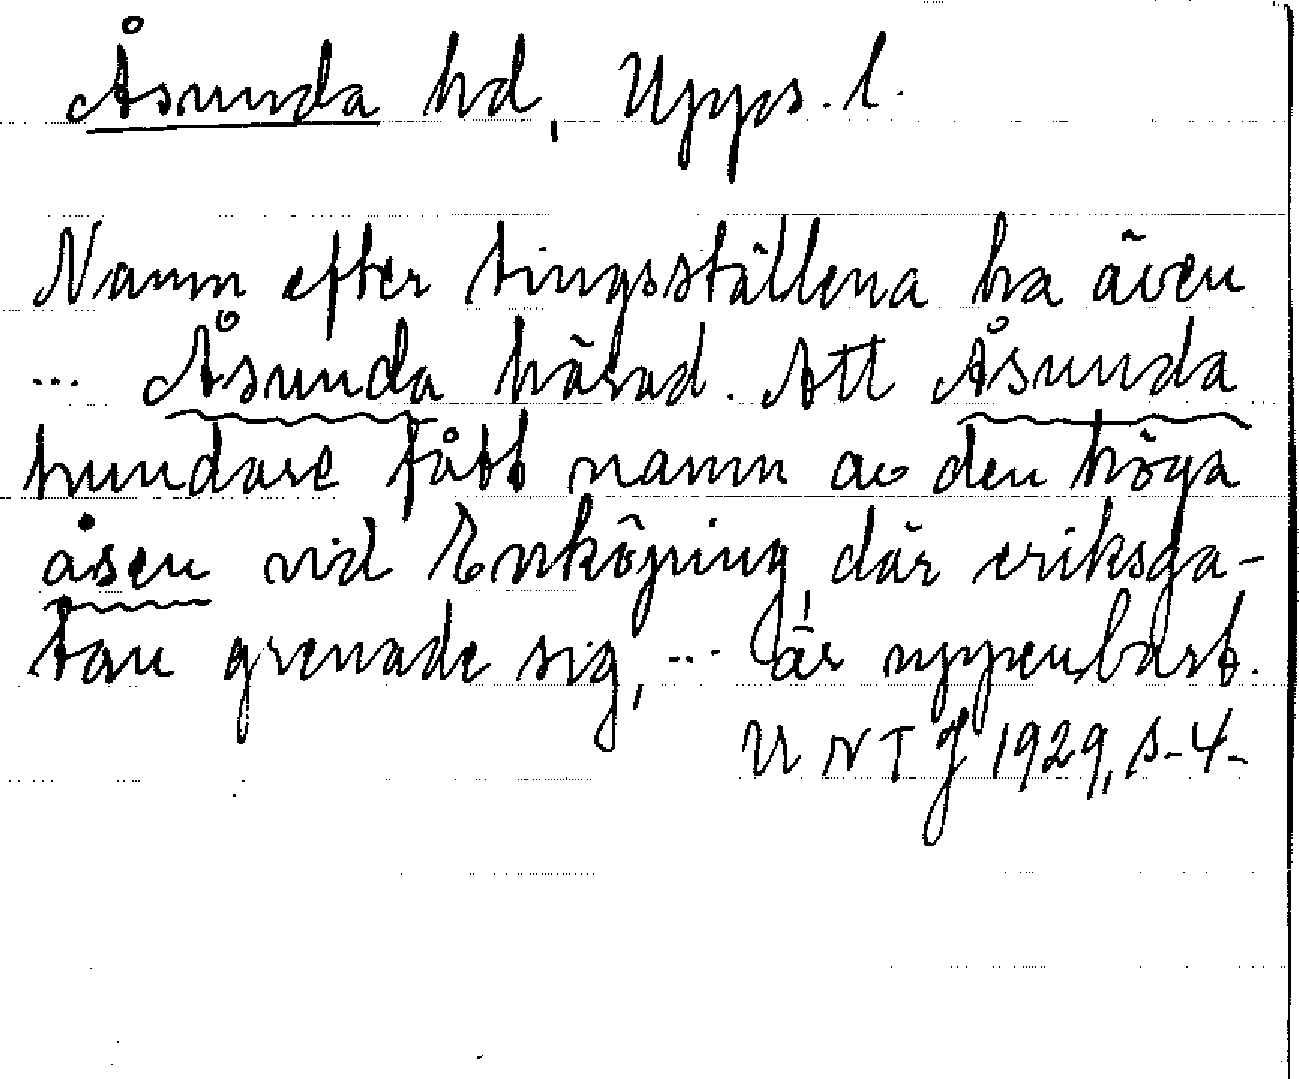 Åsunda hd, Upps. l.
Namn efter tingsställena ha även
... Åsunda härad. Att Åsunda
hundare fått namn av den höga
åsen vid Enköping, där eriksga-
tan grenade sig, ... är uppenbart.
UNTJ 1929, s. 4.